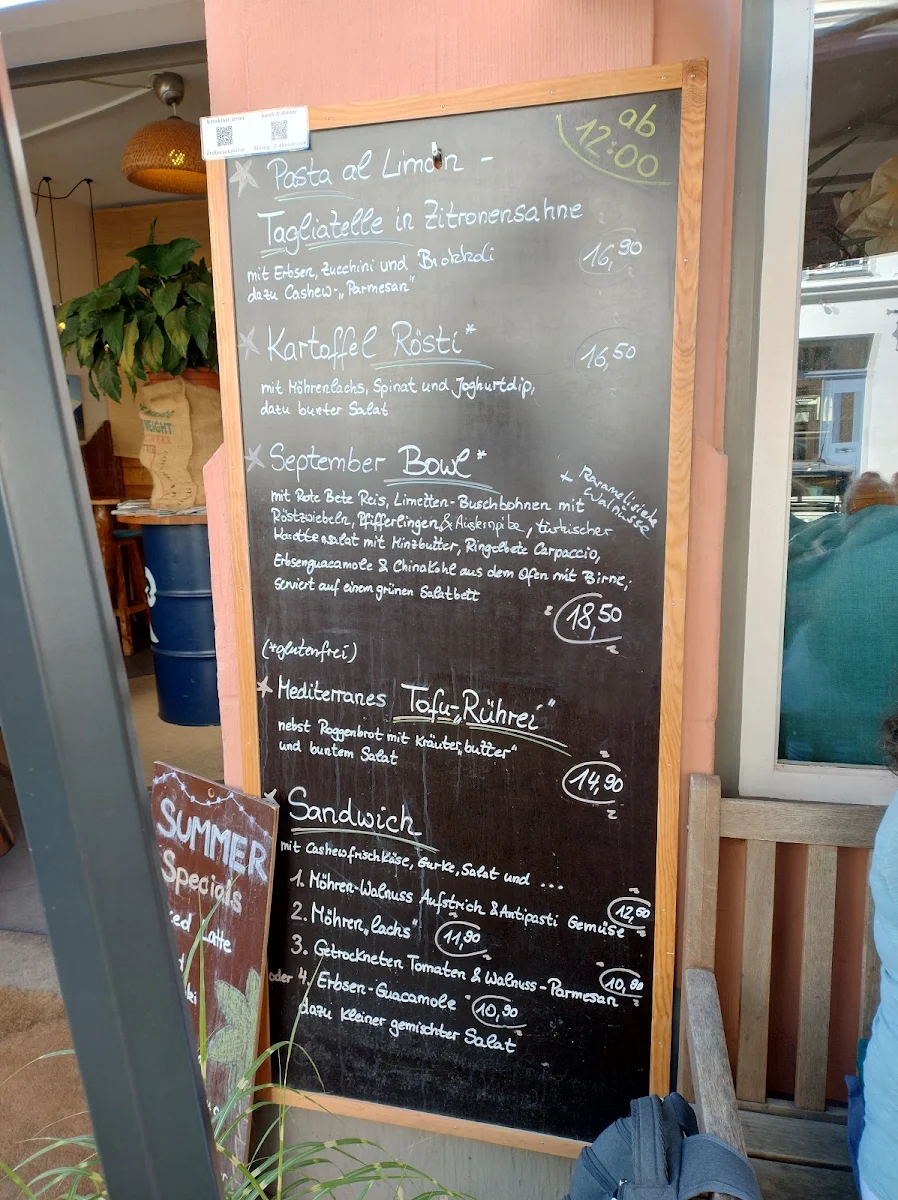 ab
12:00
Pasta al Limon -
Tagliatelle in Zitronensahne
mit Erbsen, Zucchini und Brokkoli
16,90
dazu Cashew-„Parmesan"
Kartoffel Rösti*
16,50
mit Möhrenlachs, Spinat und Joghurtdip,
dazu bunter Salat
September Bowl*
+ karamelisierte
Walnüsse
mit Rote Bete Reis, Limetten-Buschbohnen mit
Röstzwiebeln, Pfifferlingen & Austernpilze, türkischer
salat mit Minzbutter, Ringelbete Carpaccio,
Erbsenguacamole & Chinakohl aus dem Ofen mit Birne;
serviert auf einem grünen Salatbett
18,50
(*glutenfrei)
Mediterranes Tofu-„Rührei"
nebst Roggenbrot mit Kräuter„butter"
und buntem Salat
14,90
Sandwich
mit Cashewfrischkäse, Gurke, Salat und ...
1. Möhren-Walnuss Aufstrich & Antipasti Gemüse
2. Möhren„lachs" 11,90
3. Getrockneten Tomaten & Walnuss-Parmesan
oder 4. Erbsen-Guacamole 10,90
dazu kleiner gemischter Salat
SUMMER
Specials
Latte